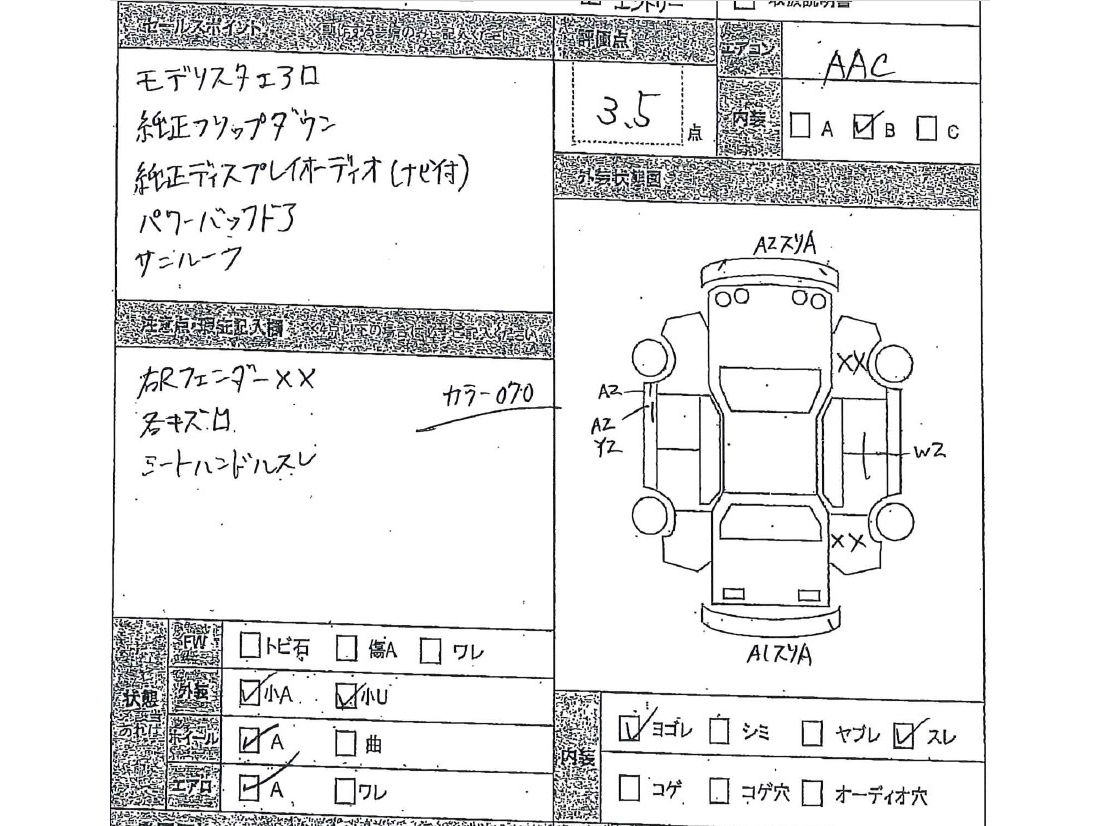 エントリー
取扱説明書
セールスポイント
評価点
エアコン
AAC
3.5
点
内装
A
B
C
モデリスタエアロ
純正フリップダウン
純正ディスプレイオーディオ(ナビ付)
パワーバックドア
サンルーフ
注意点・現症記入欄
右Rフェンダー××
各キズ凹
シートハンドルスレ
カラー070
外装状態図
A2スリA
××
A2
A2
Y2
W2
××
A1スリA
状態
FW
トビ石
傷A
ワレ
外装
小A
小U
ホイール
A
曲
エアロ
A
ワレ
内装
ヨゴレ
シミ
ヤブレ
スレ
コゲ
コゲ穴
オーディオ穴